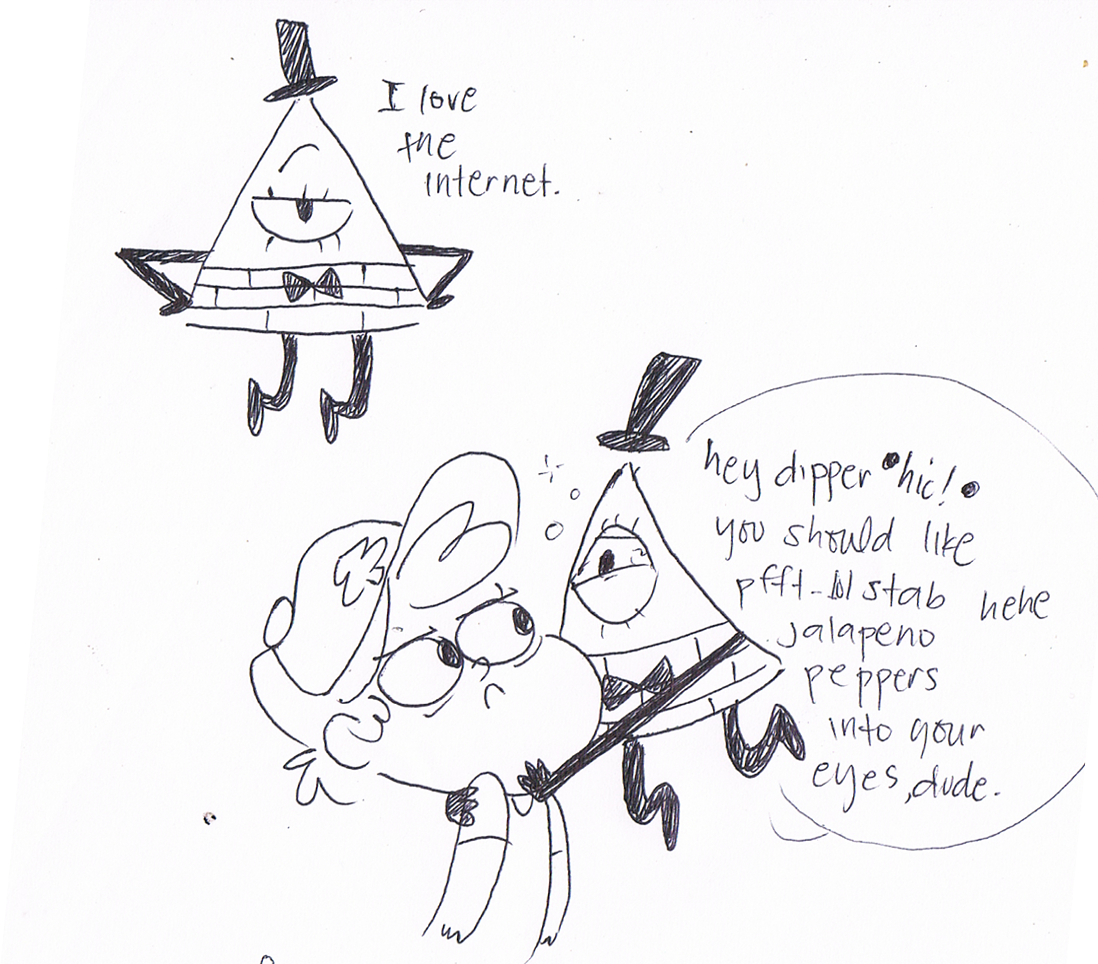 I love
the
internet.
hey dipper *hic!*
you should like
pfft-lol stab hehe
jalapeno
peppers
into your
eyes,dude.